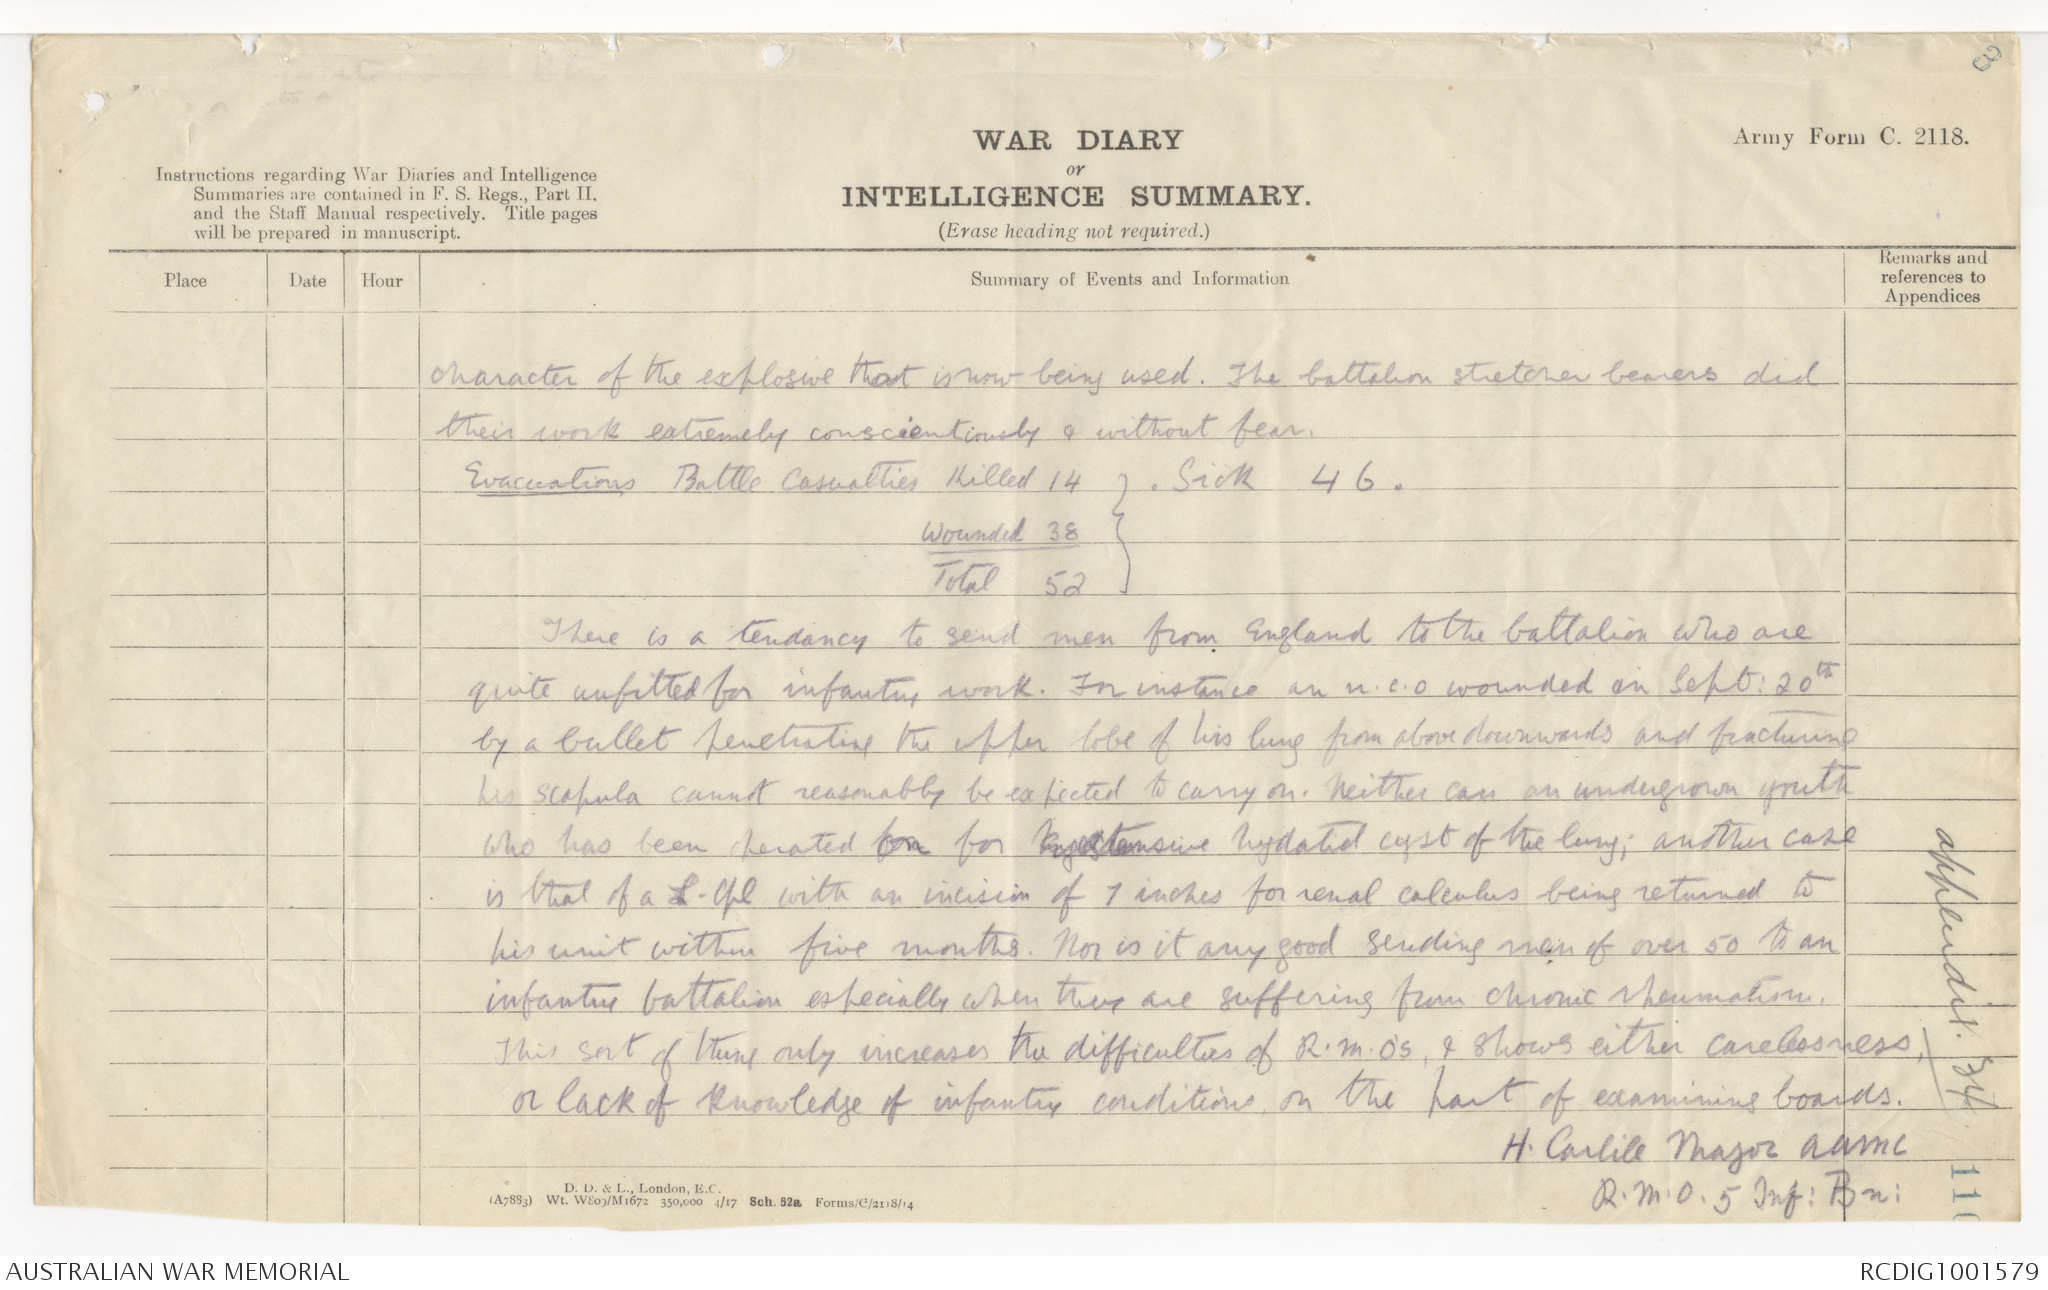 3
WAR DIARY
or
INTELLIGENCE SUMMARY.
(Erase heading not required.)
Army Form C. 2118.
Instructions regarding War Diaries and Intelligence
Summaries are contained in F. S. Regs., Part II.
and the Staff Manual respectively. Title pages
will be prepared in manuscript.
Place
Date
Hour
Summary of Events and Information
Remarks and
references to
Appendices
character of the explosive that is now being used. The battalion stretcher bearers did
their work extremely conscientiously & without fear.
Evacuations Battle Casualties Killed 14 } . Sick 46.
Wounded 38
Total 52
There is a tendancy to send men from England to the battalion who are
quite unfitted for infantry work. For instance an n.c.o wounded on Sept: 20th
by a bullet penetrating the upper lobe of his lung from above downwards and fracturing
his scapula cannot reasonably be expected to carry on. Neither can an undergrown youth
who has been operated on for extensive hydatid cyst of the lung; another case
is that of a L-Cpl with an incision of 7 inches for renal calculus being returned to
his unit within five months. Nor is it any good sending men of over 50 to an
infantry battalion especially when they are suffering from chronic rheumatism.
This sort of thing only increases the difficulties of R.M.O's, & shows either carelessness,
or lack of knowledge of infantry conditions on the part of examining boards.
H. Carlile Major AAMC
R.M.O. 5 Inf: Bn:
appendix. 34
110
D. D. & L., London, E.C.
(A7883) Wt. W809/M1672 350,000 4/17 Sch. 52a Forms/C/2118/14
AUSTRALIAN WAR MEMORIAL
RCDIG1001579